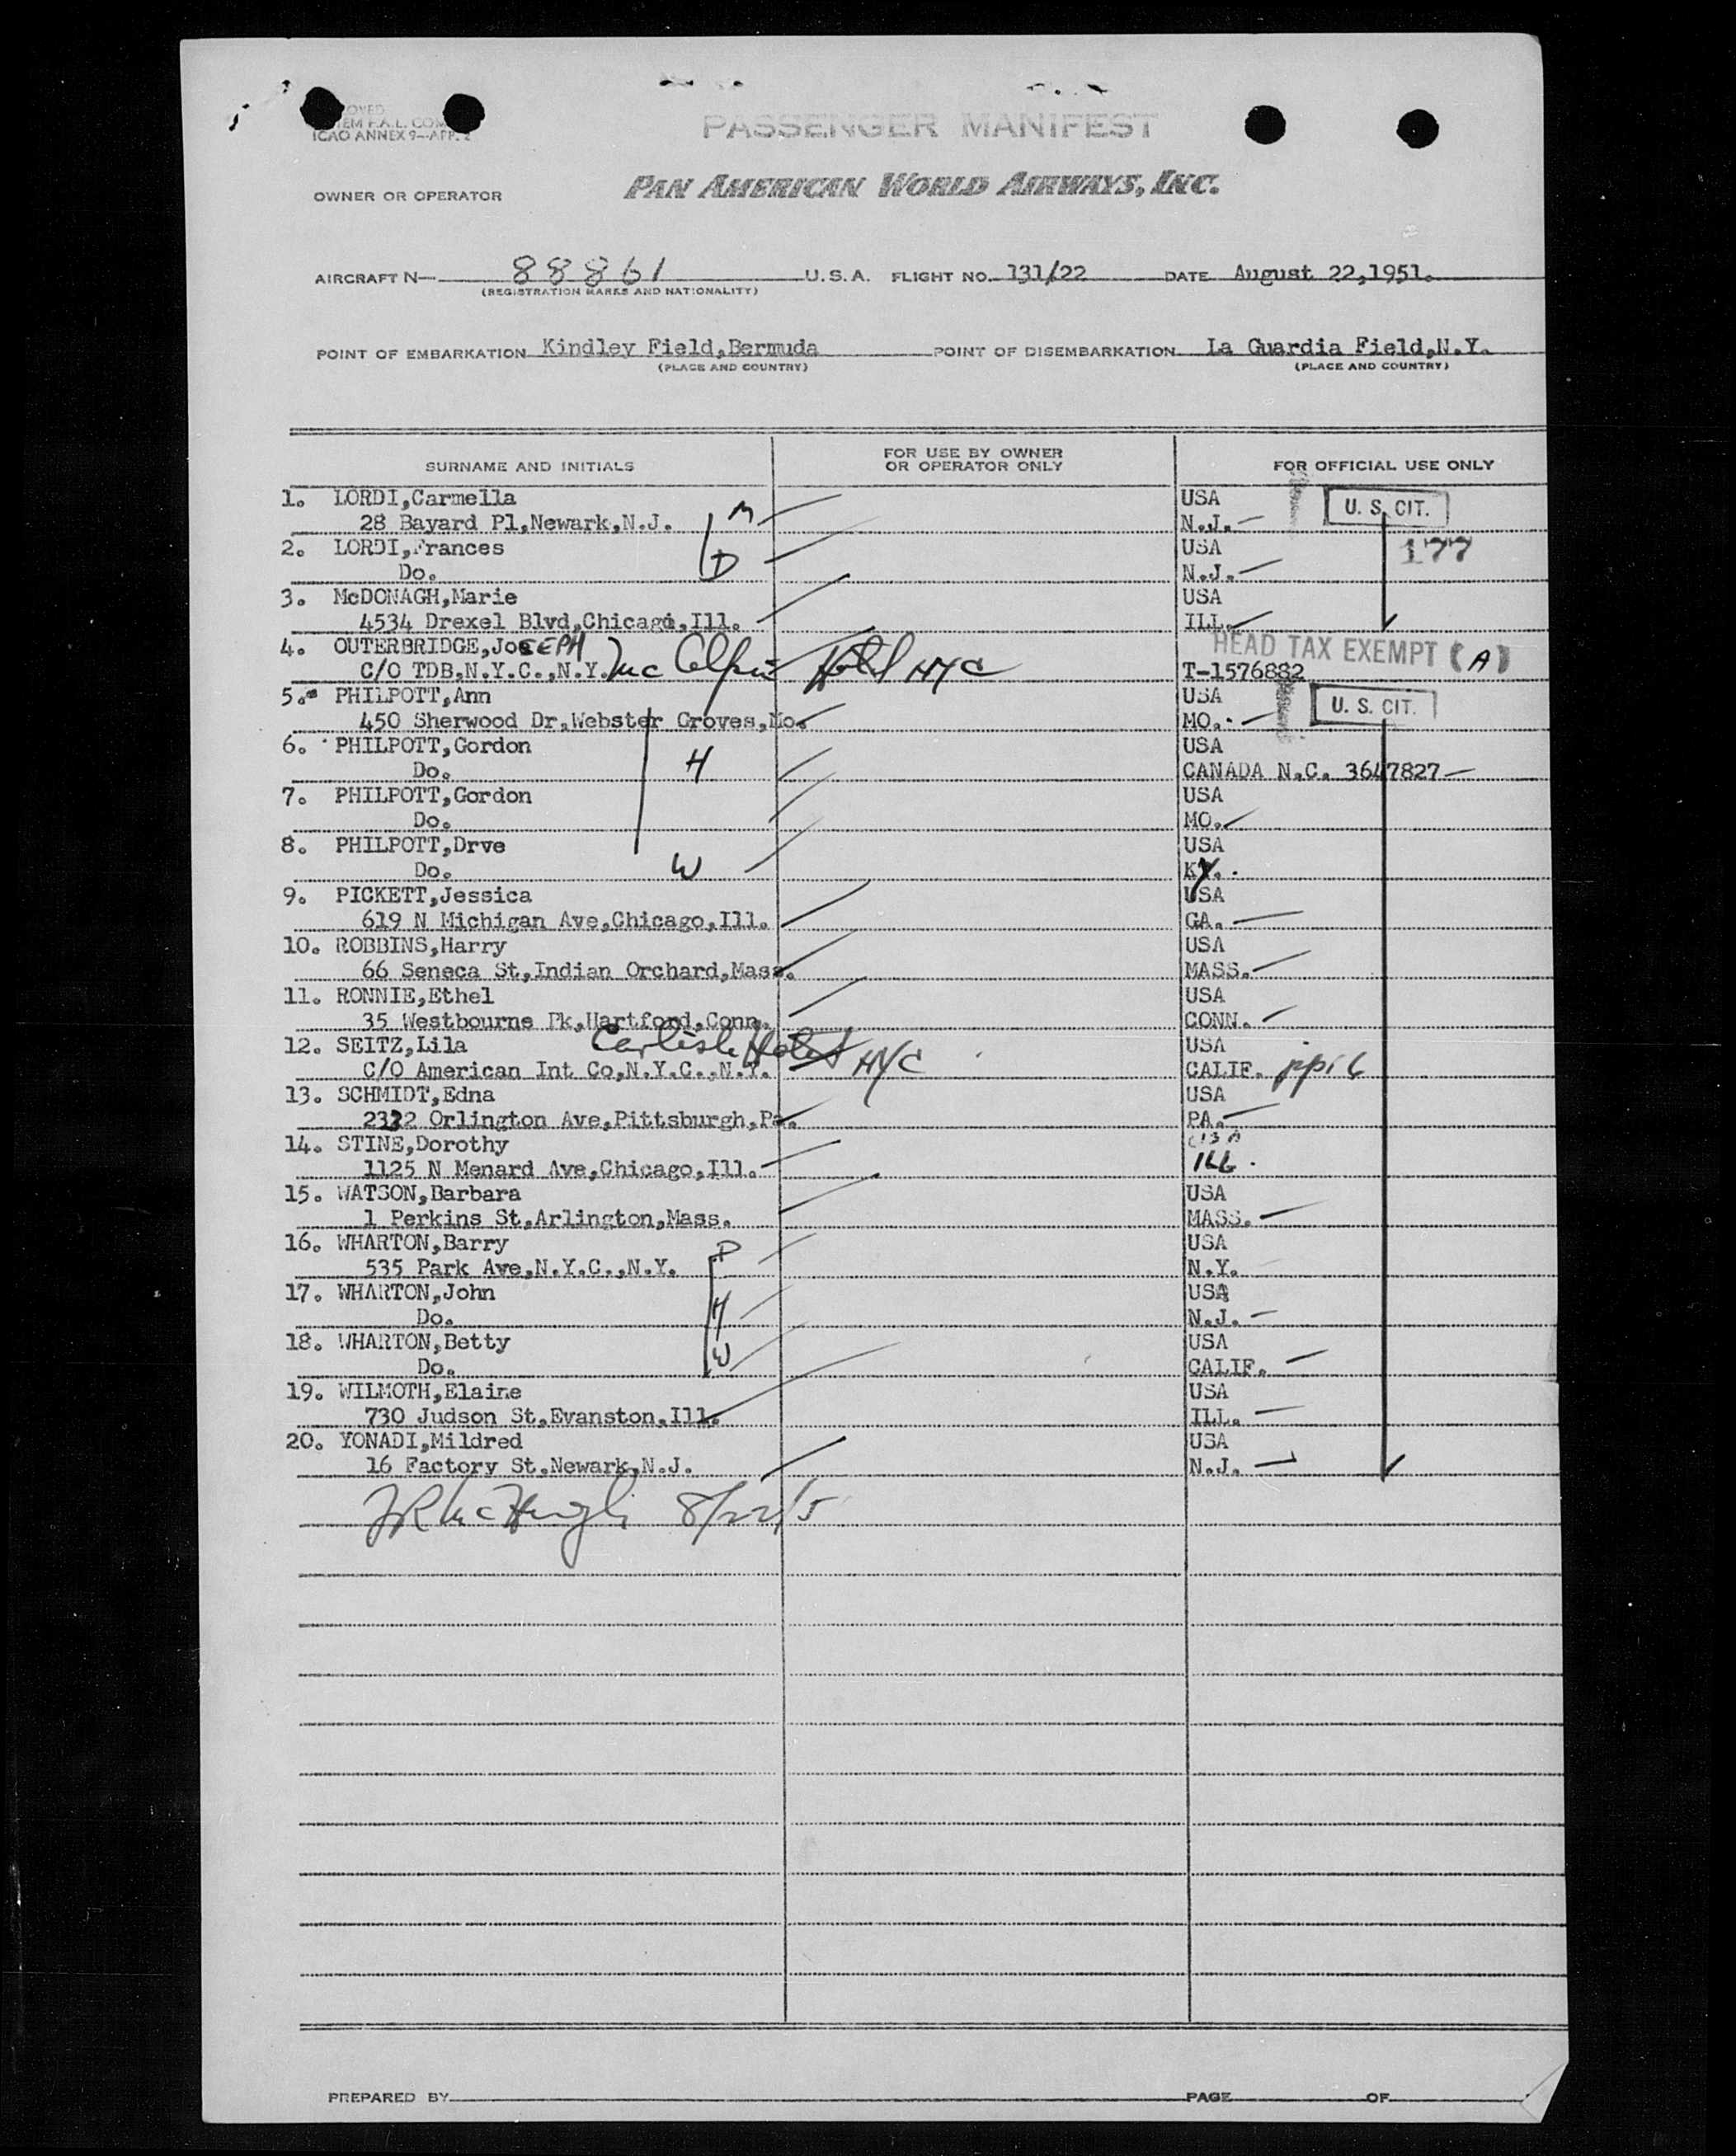 ICAO ANNEX 9—APP. 2
PASSENGER MANIFEST
OWNER OR OPERATOR PAN AMERICAN WORLD AIRWAYS, INC.
AIRCRAFT N— 88861 U.S.A. FLIGHT NO. 131/22 DATE August 22,1951.
(REGISTRATION MARKS AND NATIONALITY)
POINT OF EMBARKATION Kindley Field,Bermuda POINT OF DISEMBARKATION La Guardia Field,N.Y.
(PLACE AND COUNTRY) (PLACE AND COUNTRY)
SURNAME AND INITIALS FOR USE BY OWNER OR OPERATOR ONLY FOR OFFICIAL USE ONLY
1. LORDI,Carmella USA U. S. CIT.
28 Bayard Pl,Newark,N.J. M N.J.
2. LORDI,Frances USA 177
Do. D N.J.
3. McDONAGH,Marie USA
4534 Drexel Blvd,Chicago,Ill. ILL.
4. OUTERBRIDGE,JoSEPH HEAD TAX EXEMPT (A)
C/O TDB,N.Y.C.,N.Y. McAlpin Hotel NYC T-1576882
5. PHILPOTT,Ann USA U. S. CIT.
450 Sherwood Dr,Webster Groves,Mo. MO.
6. PHILPOTT,Gordon USA
Do. H CANADA N.C. 3647827
7. PHILPOTT,Gordon USA
Do. MO.
8. PHILPOTT,Drve USA
Do. W KY.
9. PICKETT,Jessica USA
619 N Michigan Ave,Chicago,Ill. GA.
10. ROBBINS,Harry USA
66 Seneca St,Indian Orchard,Mass. MASS.
11. RONNIE,Ethel USA
35 Westbourne Pk,Hartford,Conn. CONN.
12. SEITZ,Lila Carlisle Hotel NYC USA
C/O American Int Co,N.Y.C.,N.Y. CALIF.
13. SCHMIDT,Edna USA
2332 Orlington Ave,Pittsburgh,Pa. PA.
14. STINE,Dorothy USA
1125 N Menard Ave,Chicago,Ill. ILL.
15. WATSON,Barbara USA
1 Perkins St,Arlington,Mass. MASS.
16. WHARTON,Barry USA
535 Park Ave,N.Y.C.,N.Y. N.Y.
17. WHARTON,John USA
Do. H N.J.
18. WHARTON,Betty USA
Do. W CALIF.
19. WILMOTH,Elaine USA
730 Judson St,Evanston,Ill. ILL.
20. YONADI,Mildred USA
16 Factory St,Newark,N.J. N.J.
8/22/5
PREPARED BY PAGE OF